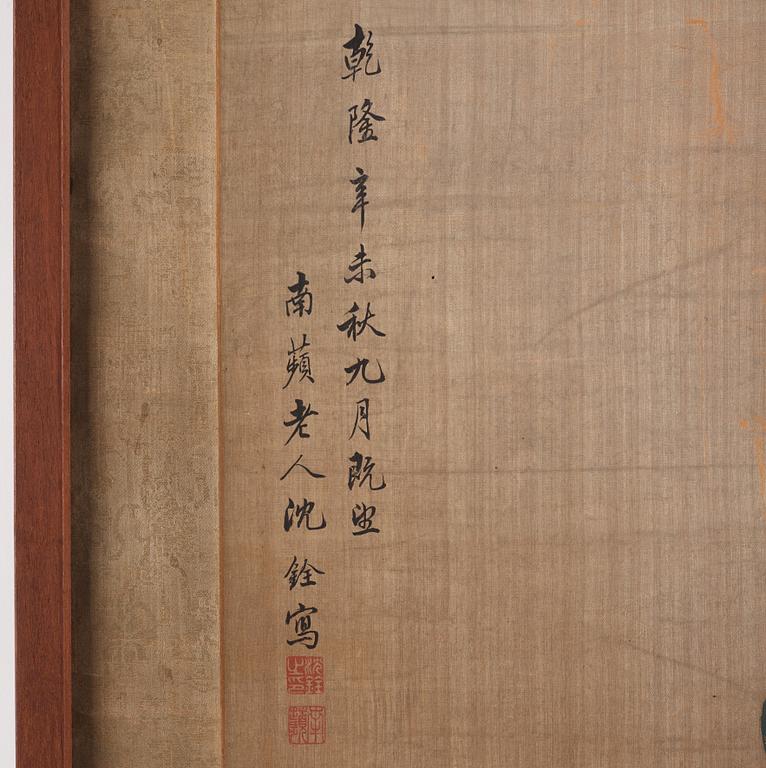 乾隆辛未秋九月既望
南蘋老人沈銓寫
沈銓之印
南蘋